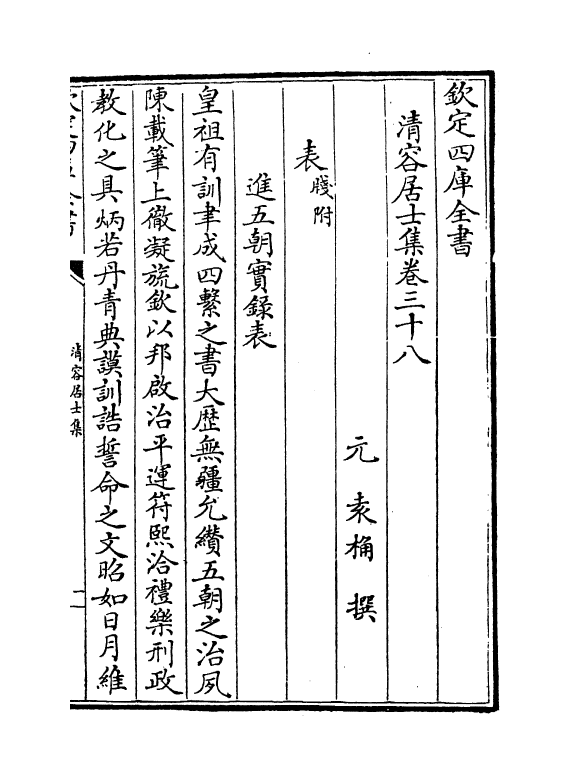 欽定四庫全書
清容居士集卷三十八
元 袁桷 撰
表牋附
進五朝實録表
皇祖有訓聿成四繫之書大歴無疆允纘五朝之治夙
陳載筆上徹凝旒欽以邦啟治平運符熙洽禮樂刑政
教化之具炳若丹青典謨訓誥誓命之文昭如日月維
欽定四庫全書
清容居士集